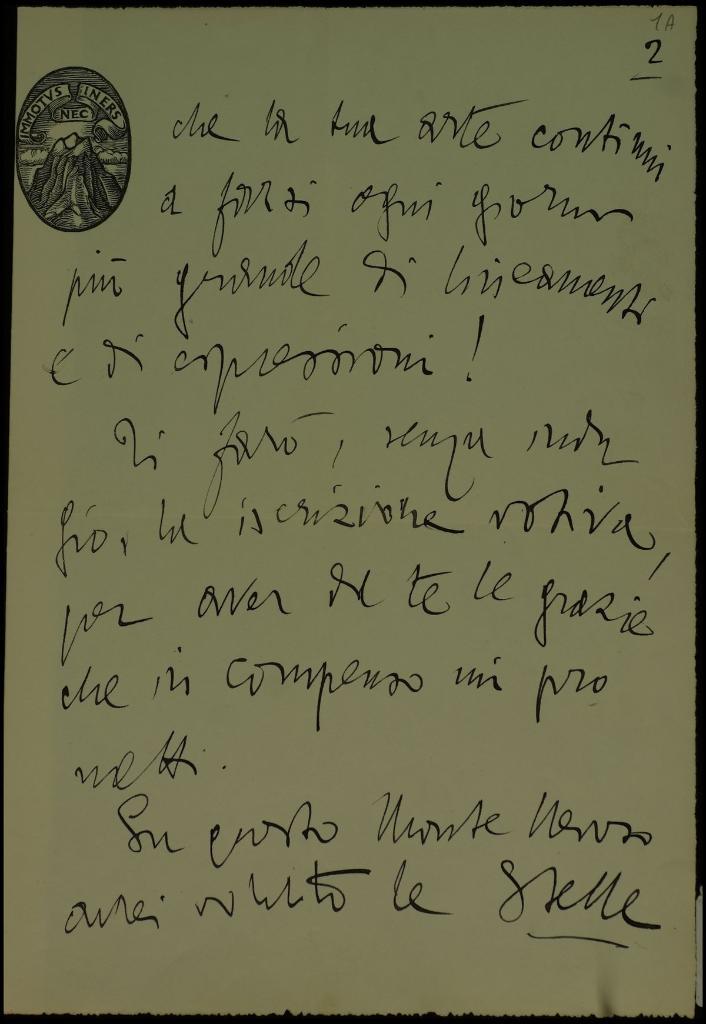 1A
2
IMMOTVS NEC INERS
che la tua arte continui
a farsi ogni giorno
più grande di lineamenti
e di espressioni!
Ti farò, senza indu
gio, la iscrizione votiva,
per aver da te le grazie
che in compenso mi pro
metti.
Su questo Monte Nevoso
avrei voluto le Stelle